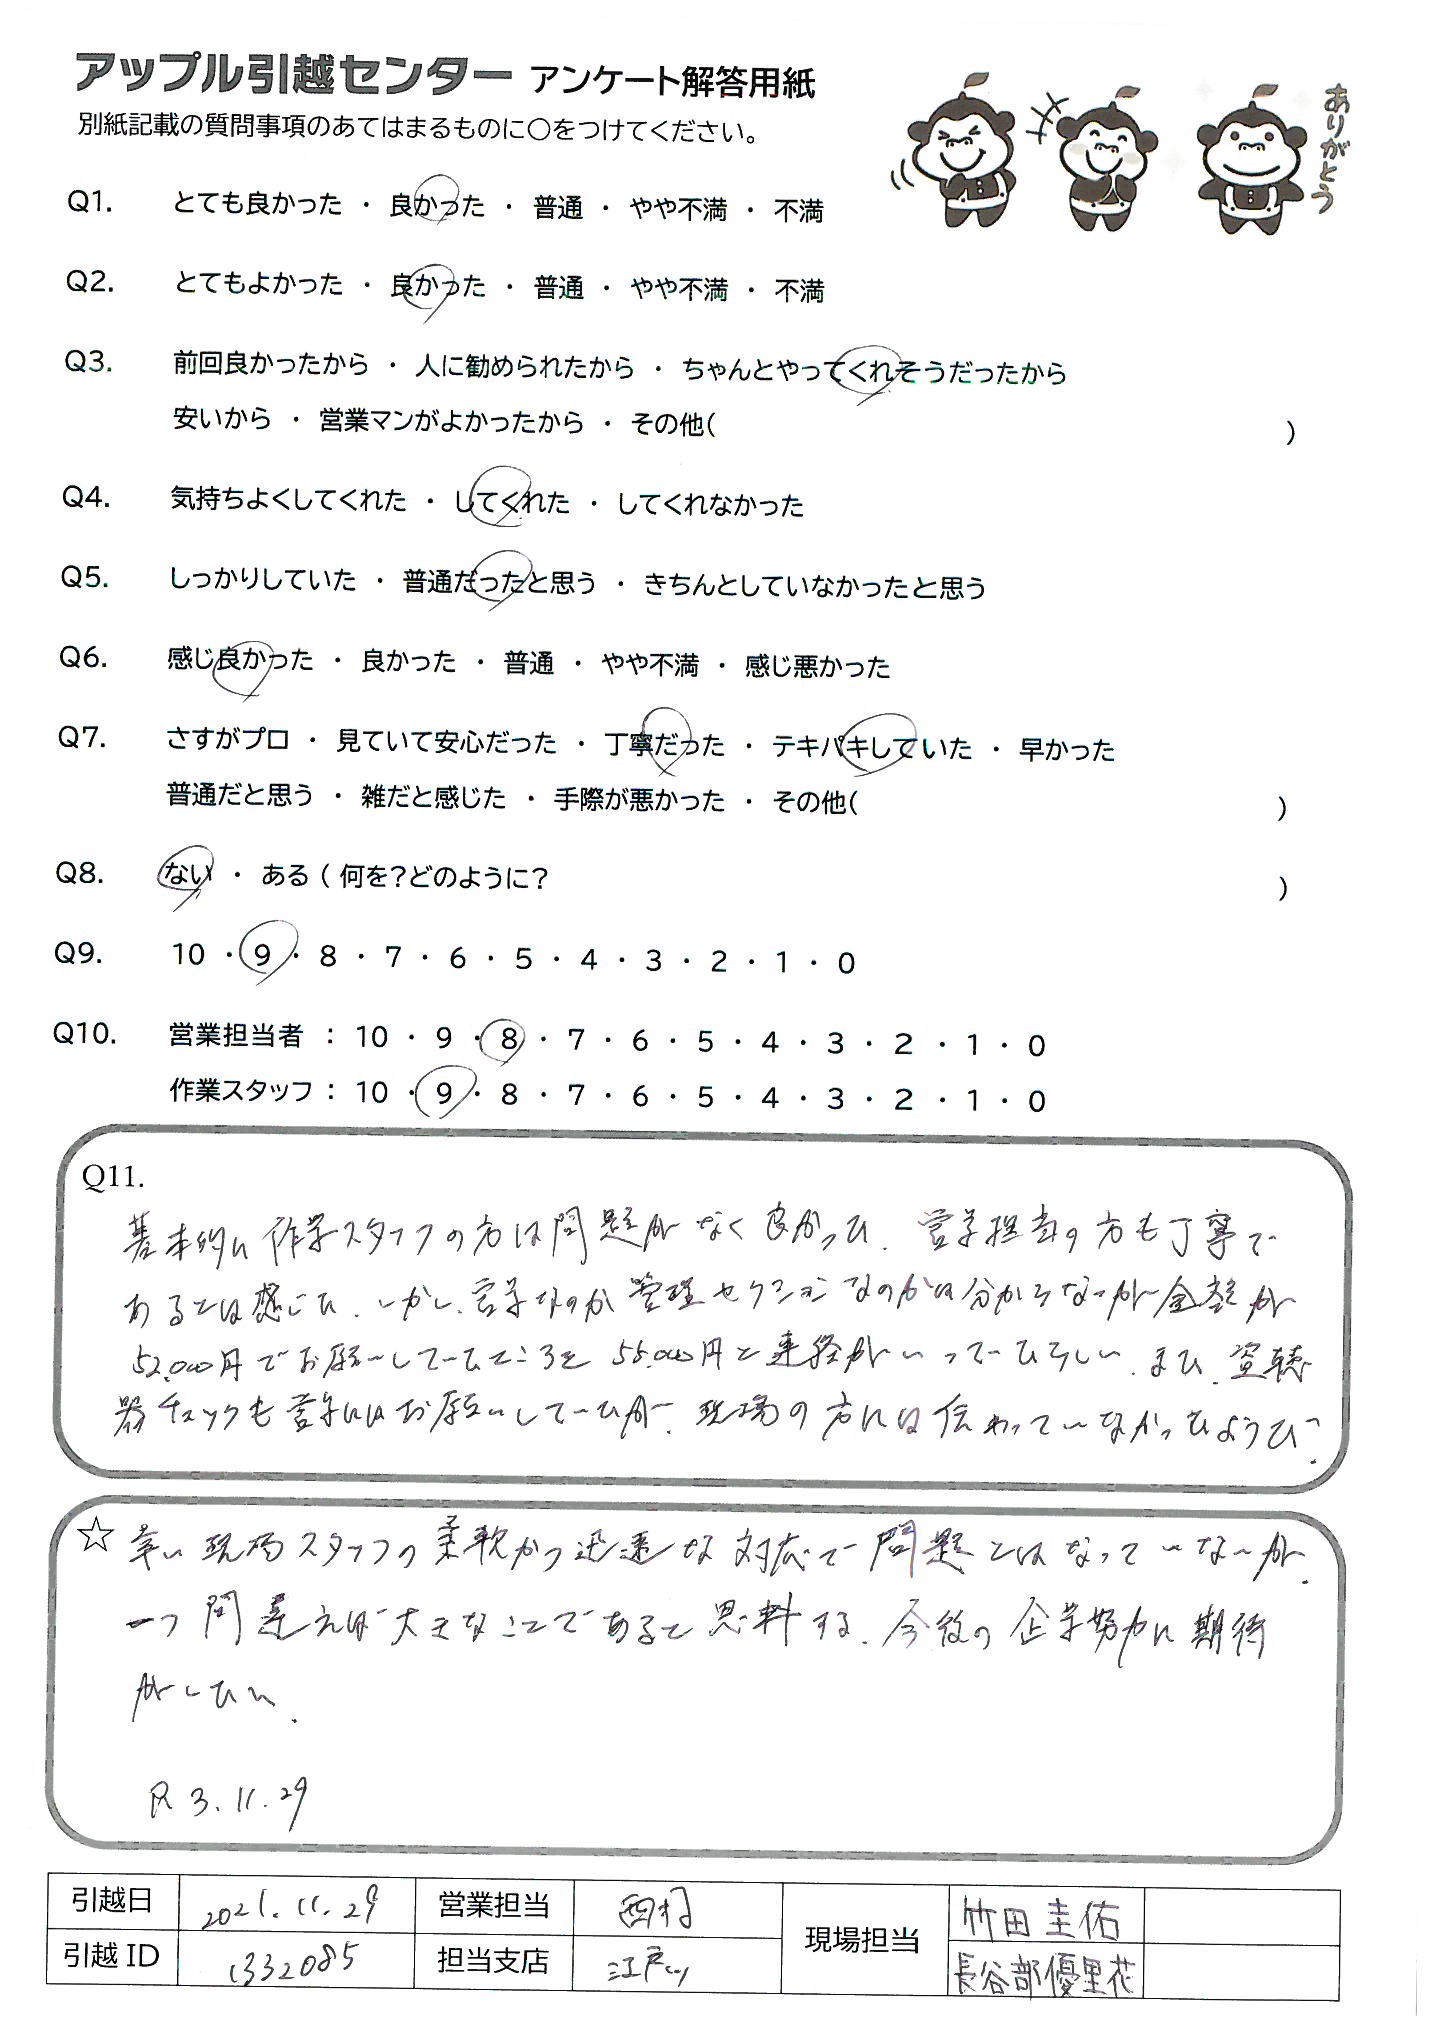 アップル引越センター アンケート解答用紙
別紙記載の質問事項のあてはまるものに○をつけてください。
ありがとう
Q1. とても良かった ・ 良かった ・ 普通 ・ やや不満 ・ 不満
Q2. とてもよかった ・ 良かった ・ 普通 ・ やや不満 ・ 不満
Q3. 前回良かったから ・ 人に勧められたから ・ ちゃんとやってくれそうだったから
安いから ・ 営業マンがよかったから ・ その他( )
Q4. 気持ちよくしてくれた ・ してくれた ・ してくれなかった
Q5. しっかりしていた ・ 普通だったと思う ・ きちんとしていなかったと思う
Q6. 感じ良かった ・ 良かった ・ 普通 ・ やや不満 ・ 感じ悪かった
Q7. さすがプロ ・ 見ていて安心だった ・ 丁寧だった ・ テキパキしていた ・ 早かった
普通だと思う ・ 雑だと感じた ・ 手際が悪かった ・ その他( )
Q8. ない ・ ある ( 何を?どのように? )
Q9. 10 ・ 9 ・ 8 ・ 7 ・ 6 ・ 5 ・ 4 ・ 3 ・ 2 ・ 1 ・ 0
Q10. 営業担当者 : 10 ・ 9 ・ 8 ・ 7 ・ 6 ・ 5 ・ 4 ・ 3 ・ 2 ・ 1 ・ 0
作業スタッフ : 10 ・ 9 ・ 8 ・ 7 ・ 6 ・ 5 ・ 4 ・ 3 ・ 2 ・ 1 ・ 0
Q11.
基本的に作業スタッフの方は問題がなく良かった。営業担当の方も丁寧で
あるとは感じた。しかし、営業なのか管理セクションなのかは分からないが金額が
52,000円でお願いしていたところを55,000円と連絡がいっていたらしい。また、盗聴
器チェックも営業にはお願いしていたが、現場の方には伝わっていなかったようだ。
☆ 幸い現場スタッフの柔軟かつ迅速な対応で問題とはなっていないが、
一つ間違えば大きなことであると思料する。今後の企業努力に期待
がしたい。
R3.11.29
引越日 2021.11.29 営業担当 西村 現場担当 竹田圭佑
引越ID 1332085 担当支店 江戸川 長谷部優里花